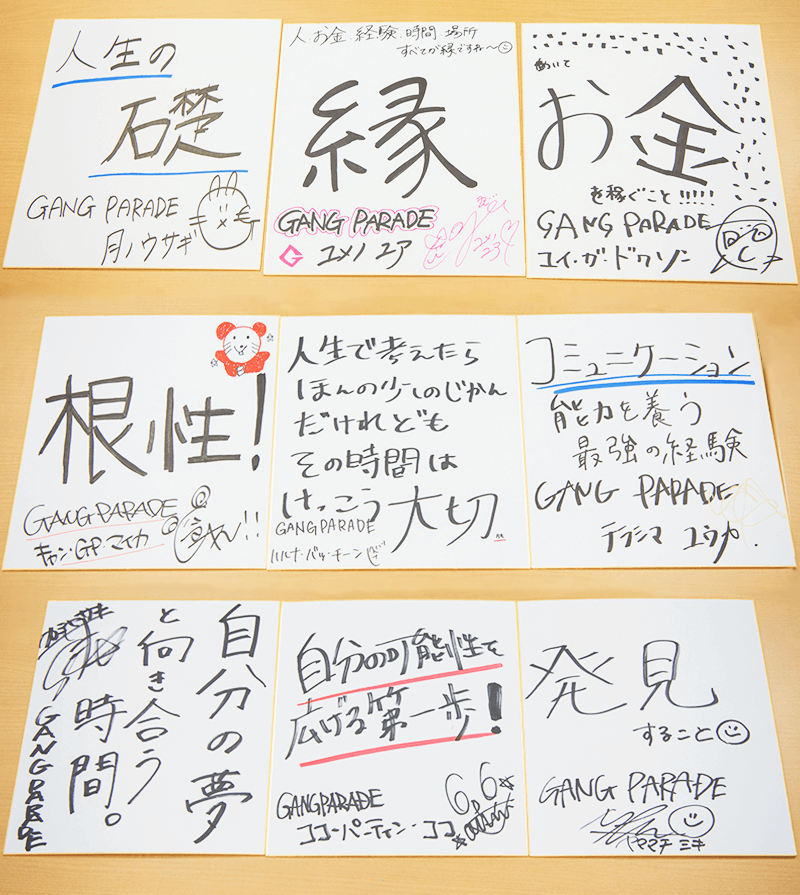 人生の
礎
GANG PARADE
月ノウサギ
人.お金 経験.時間.場所
すべてが縁ですね〜
縁
GANG PARADE
G
ユメノユア
働いて
お金
を稼ぐこと!!!!!
GANG PARADE
ユイ・ガ・ドクソン
根性!
GANG PARADE
キャン・GP・マイカ
人生で考えたら
ほんの少しのじかん
だけれども
その時間は
けっこう大切
GANG PARADE
ハルナ・バッ・チーン
コミュニケーション
能力を養う
最強の経験
GANG PARADE
テラシマ ユウカ.
自分の夢
と向き合う
時間。
GANG PARADE
自分の可能性を
広げる第一歩!
GANGPARADE
ココ・パーティン・ココ
G.P
発見
すること
GANG PARADE
ヤママチ ミキ